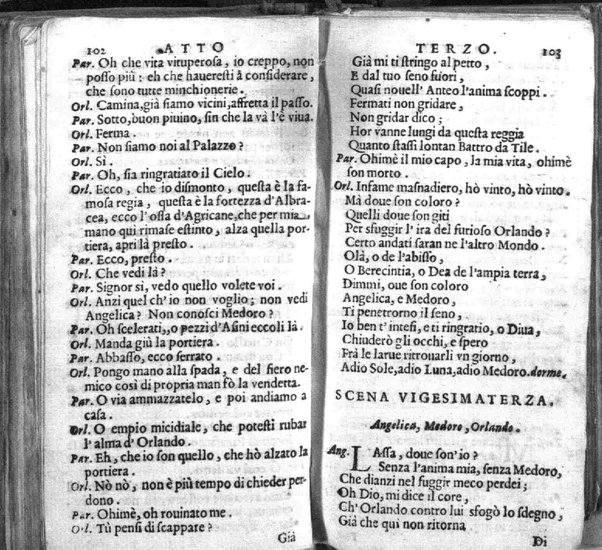 102 ATTO
Par. Oh che vita vituperosa, io creppo, non
posso più: eh che haueresti à considerare,
che sono tutte minchionerie.
Orl. Camina, già siamo vicini, affretta il passo.
Par. Sotto, buon piuino, sin che la và l'è viua.
Orl. Ferma.
Par. Non siamo noi al Palazzo?
Orl. Si.
Par. Oh, sia ringratiato il Cielo.
Orl. Ecco, che io dismonto, questa è la fa-
mosa regia, questa è la fortezza d'Albra-
cea, ecco l'ossa d'Agricane, che per mia
mano qui rimase estinto, alza quella por-
tiera, apri là presto.
Par. Ecco, presto.
Orl. Che vedi là?
Par. Signor si, vedo quello volete voi.
Orl. Anzi quel ch'io non voglio; non vedi
Angelica? Non conosci Medoro?
Par. Oh scelerati, o pezzi d'Asini eccoli là.
Orl. Manda giù la portiera.
Par. Abbasso, ecco serrato.
Orl. Pongo mano alla spada, e del fiero ne-
mico così di propria man fò la vendetta.
Par. O via ammazzatelo, e poi andiamo a
casa.
Orl. O empio micidiale, che potesti rubar
l'alma d'Orlando.
Par. Eh, che io son quello, che hò alzato la
portiera.
Orl. Nò nò, non è più tempo di chieder per-
dono.
Par. Ohimè, oh rouinato me.
Orl. Tù pensi di scappare?
Già
TERZO. 103
Già mi ti stringo al petto,
E dal tuo seno fuori,
Quasi nouell' Anteo l'anima scoppi.
Fermati non gridare,
Non gridar dico;
Hor vanne lungi da questa reggia
Quanto stassi lontan Battro da Tile.
Par. Ohimè il mio capo, la mia vita, ohimè
son morto.
Orl. Infame masnadiero, hò vinto, hò vinto.
Mà doue son coloro?
Quelli doue son giti
Per sfuggir l'ira del furioso Orlando?
Certo andati saran ne l'altro Mondo.
Olà, o de l'abisso,
O Berecintia, o Dea de l'ampia terra,
Dimmi, oue son coloro
Angelica, e Medoro,
Ti penetrorno il seno,
Io ben t'intesi, e ti ringratio, o Diua,
Chiuderò gli occhi, e spero
Frà le larue ritrouarli vn giorno,
Adio Sole, adio Luna, adio Medoro. dorme.
SCENA VIGESIMATERZA.
Angelica, Medoro, Orlando.
Ang. LAssa, doue son'io?
Senza l'anima mia, senza Medoro,
Che dianzi nel fuggir meco perdei;
Oh Dio, mi dice il core,
Ch'Orlando contro lui sfogò lo sdegno,
Già che qui non ritorna
Di